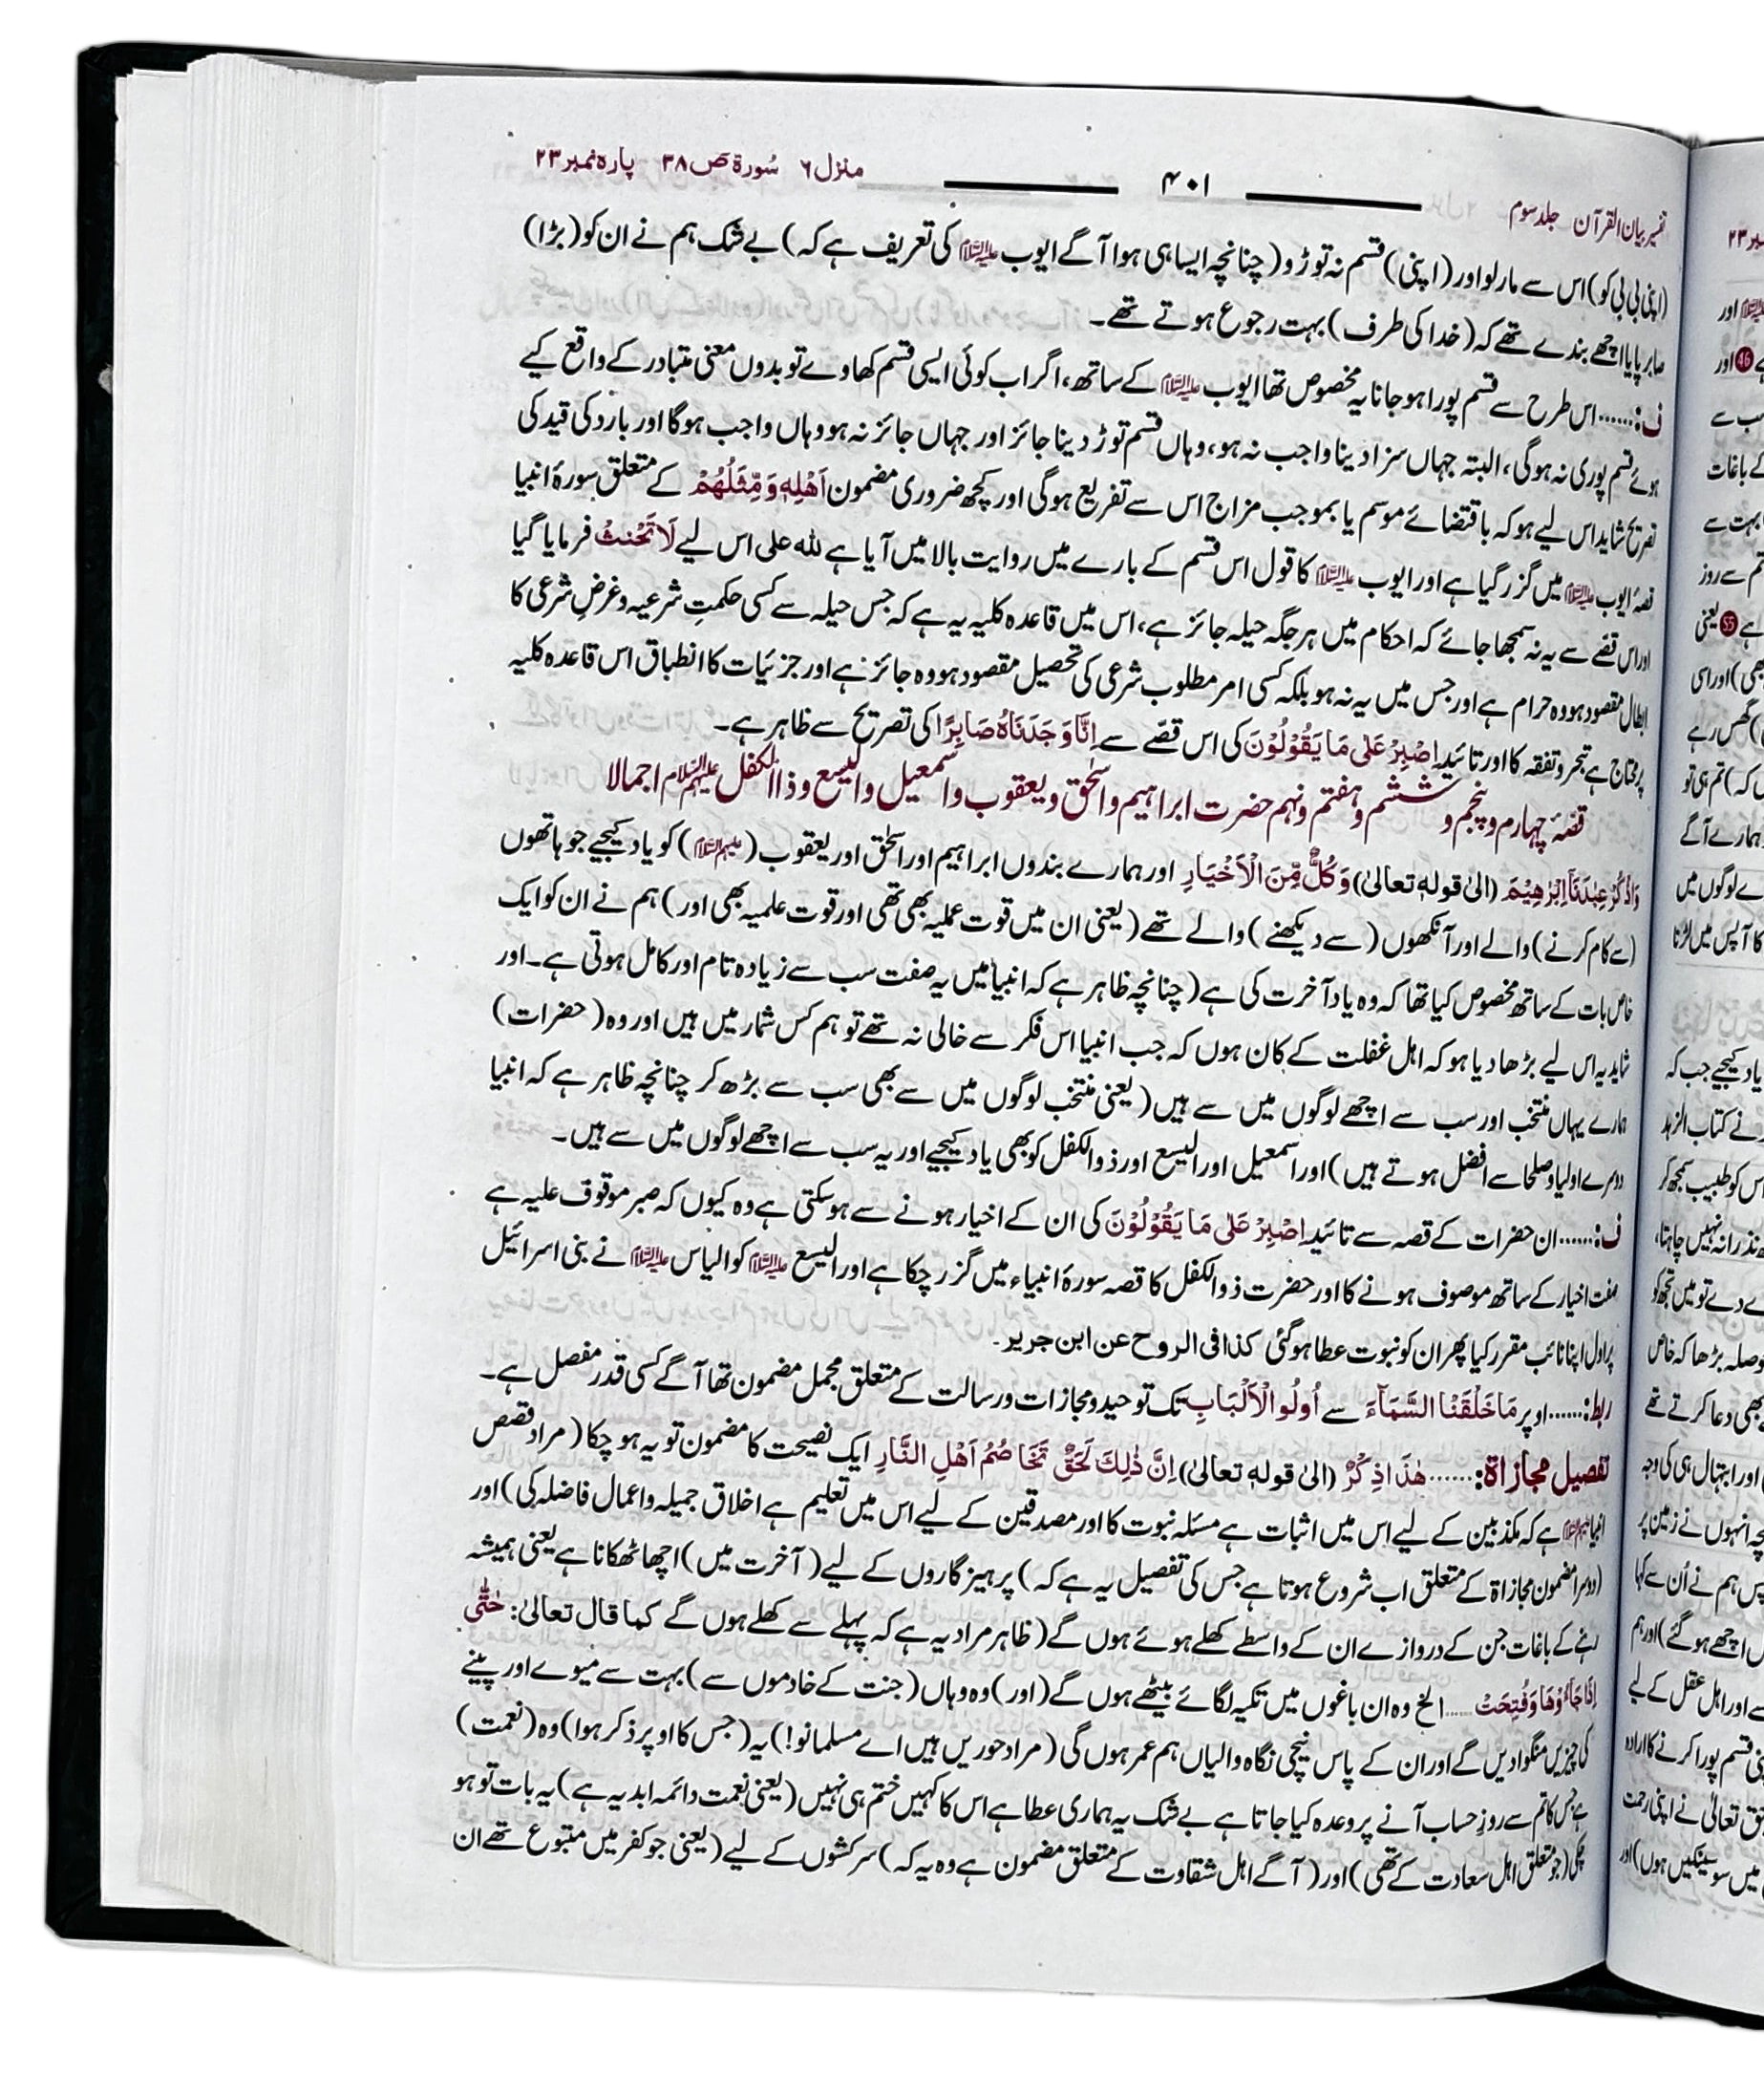 تفسیر بیان القرآن جلد سوم ۴۰۱ منزل ۶ سُورۃ صٓ ۳۸ پارہ نمبر ۲۳
(اپنی بی بی کو) اس سے مارلو اور (اپنی) قسم نہ توڑو (چنانچہ ایسا ہی ہوا آگے ایوب علیہ السلام کی تعریف ہے کہ) بے شک ہم نے ان کو (بڑا)
صابر پایا اچھے بندے تھے کہ (خدا کی طرف) بہت رجوع ہوتے تھے۔
ف: ...... اس طرح سے قسم پورا ہو جانا یہ مخصوص تھا ایوب علیہ السلام کے ساتھ، اگر اب کوئی ایسی قسم کھاوے تو بدوں معنی متبادر کے واقع کیے
ہوئے قسم پوری نہ ہوگی، البتہ جہاں سزا دینا واجب نہ ہو، وہاں قسم توڑ دینا جائز اور جہاں جائز نہ ہو وہاں واجب ہوگا اور بارد کی قید کی
تصریح شاید اس لیے ہو کہ باقتضائے موسم یا بموجب مزاج اس سے تفریع ہوگی اور کچھ ضروری مضمون اَهْلِهٖ وَ مِّثْلَهُمْ کے متعلق سورۂ انبیا
قصۂ ایوب علیہ السلام میں گزر گیا ہے اور ایوب علیہ السلام کا قول اس قسم کے بارے میں روایت بالا میں آیا ہے للہ علی اس لیے لَا تَحْنَثْ فرمایا گیا
اور اس قصے سے یہ نہ سمجھا جائے کہ احکام میں ہر جگہ حیلہ جائز ہے، اس میں قاعدہ کلیہ یہ ہے کہ جس حیلہ سے کسی حکمتِ شرعیہ و غرضِ شرعی کا
ابطال مقصود ہو وہ حرام ہے اور جس میں یہ نہ ہو بلکہ کسی امر مطلوب شرعی کی تحصیل مقصود ہو وہ جائز ہے اور جزئیات کا انطباق اس قاعدہ کلیہ
پر محتاج ہے تبحر و تفقہ کا اور تائید اِصْبِرْ عَلٰى مَا يَقُوْلُوْنَ کی اس قصّے سے اِنَّا وَجَدْنَاهُ صَابِرًا کی تصریح سے ظاہر ہے۔
قصۂ چہارم و پنجم و ششم و ہفتم و نہم حضرت ابراہیم و اسحٰق و یعقوب و اسمٰعیل و الیسع و ذا الکفل علیہم السلام اجمالا
وَاذْكُرْ عِبٰدَنَاۤ اِبْرٰهِيْمَ (الیٰ قولہٖ تعالیٰ) وَكُلٌّ مِّنَ الْاَخْيَارِ اور ہمارے بندوں ابراہیم اور اسحٰق اور یعقوب (علیہم السلام) کو یاد کیجیے جو ہاتھوں
(سے کام کرنے) والے اور آنکھوں (سے دیکھنے) والے تھے (یعنی ان میں قوت عملیہ بھی تھی اور قوت علمیہ بھی اور) ہم نے ان کو ایک
خاص بات کے ساتھ مخصوص کیا تھا کہ وہ یاد آخرت کی ہے (چنانچہ ظاہر ہے کہ انبیا میں یہ صفت سب سے زیادہ تام اور کامل ہوتی ہے۔ اور
شاید یہ اس لیے بڑھا دیا ہو کہ اہل غفلت کے کان ہوں کہ جب انبیا اس فکر سے خالی نہ تھے تو ہم کس شمار میں ہیں اور وہ (حضرات)
ہمارے یہاں منتخب اور سب سے اچھے لوگوں میں سے ہیں (یعنی منتخب لوگوں میں سے بھی سب سے بڑھ کر چنانچہ ظاہر ہے کہ انبیا
دوسرے اولیا و صلحا سے افضل ہوتے ہیں) اور اسمٰعیل اور الیسع اور ذوالکفل کو بھی یاد کیجیے اور یہ سب سے اچھے لوگوں میں سے ہیں۔
ف: ...... ان حضرات کے قصہ سے تائید اِصْبِرْ عَلٰى مَا يَقُوْلُوْنَ کی ان کے اخیار ہونے سے ہو سکتی ہے وہ کیوں کہ صبر موقوف علیہ ہے
صفت اخیار کے ساتھ موصوف ہونے کا اور حضرت ذوالکفل کا قصہ سورۂ انبیاء میں گزر چکا ہے اور الیسع علیہ السلام کو الیاس علیہ السلام نے بنی اسرائیل
پر اول اپنا نائب مقرر کیا پھر ان کو نبوت عطا ہوگئی کذا فی الروح عن ابن جریر۔
ربط: ...... اوپر مَا خَلَقْنَا السَّمَآءَ سے اُولُوا الْاَلْبَابِ تک توحید و مجازات و رسالت کے متعلق مجمل مضمون تھا آگے کسی قدر مفصل ہے۔
تفصیل مجازاۃ: ...... هٰذَا ذِكْرٌ (الیٰ قولہٖ تعالیٰ) اِنَّ ذٰلِكَ لَحَقٌّ تَخَاصُمُ اَهْلِ النَّارِ ایک نصیحت کا مضمون تو یہ ہو چکا (مراد قصص
انبیا علیہم السلام ہے کہ مکذبین کے لیے اس میں اثبات ہے مسئلہ نبوت کا اور مصدقین کے لیے اس میں تعلیم ہے اخلاق جمیلہ و اعمال فاضلہ کی) اور
(دوسرا مضمون مجازاۃ کے متعلق اب شروع ہوتا ہے جس کی تفصیل یہ ہے کہ) پرہیز گاروں کے لیے (آخرت میں) اچھا ٹھکانا ہے یعنی ہمیشہ
رہنے کے باغات جن کے دروازے ان کے واسطے کھلے ہوئے ہوں گے (ظاہر مراد یہ ہے کہ پہلے سے کھلے ہوں گے کما قال تعالیٰ: حَتّٰى
اِذَا جَآءُوْهَا وَفُتِحَتْ ..... الخ وہ ان باغوں میں تکیہ لگائے بیٹھے ہوں گے (اور) وہ وہاں (جنت کے خادموں سے) بہت سے میوے اور پینے
کی چیزیں منگوادیں گے اور ان کے پاس نیچی نگاہ والیاں ہم عمر ہوں گی (مراد حوریں ہیں اے مسلمانو!) یہ (جس کا اوپر ذکر ہوا) وہ (نعمت)
ہے جس کا تم سے روزِ حساب آنے پر وعدہ کیا جاتا ہے بے شک یہ ہماری عطا ہے اس کا کہیں ختم ہی نہیں (یعنی نعمت دائمہ ابدیہ ہے) یہ بات تو ہو
چکی (جو متعلق اہل سعادت کے تھی) اور (آگے اہل شقاوت کے متعلق مضمون ہے وہ یہ کہ) سرکشوں کے لیے (یعنی جو کفر میں متبوع تھے ان